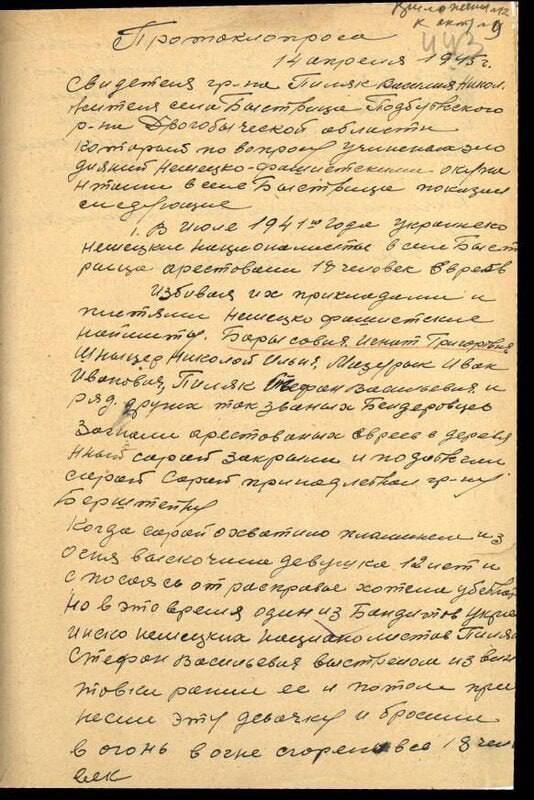 Приложение №2
к акту №9
443
Протокол опроса
14 апреля 1945 г.
Свидетеля гр-на Пиляк Василия Никол.
жителя села Быстрица Подбужского
р-на Дрогобыческой области
который по вопросу учиненых зло
дияний немецко-фашистскими окупа
нтами в селе Быстрица показал
следующие
1. В июле 1941го года украинско
немецкие националисты в селе Быст
рица арестовали 18 человек евреев
Избивая их прикладами и
плетями немецко фашистские
наймиты. Барысовия Игнат Григоровия
Шныцер Николой Ильия, Мазурык Иван
Иванович, Пиляк Стефан Васильевия и
ряд других так званых Бендеровцев
загнали арестованых евреев в деревя
нный сарай закрыли и подожгли
сарай Сарай принадлежал гр-ну
Берштейну
Когда сарай охватило пламинем из
огня выскочила девушка 12 лет и
спосаясь от расправые хотела убежать
но в это время один из Бандитов укра
инско немецких нацианолистов Пиляк
Стефан Васильевия выстрелом из вин
товки ранил ее и потом при
несли эту девочку и бросили
в огонь в огне сгорели все 18 чел
век